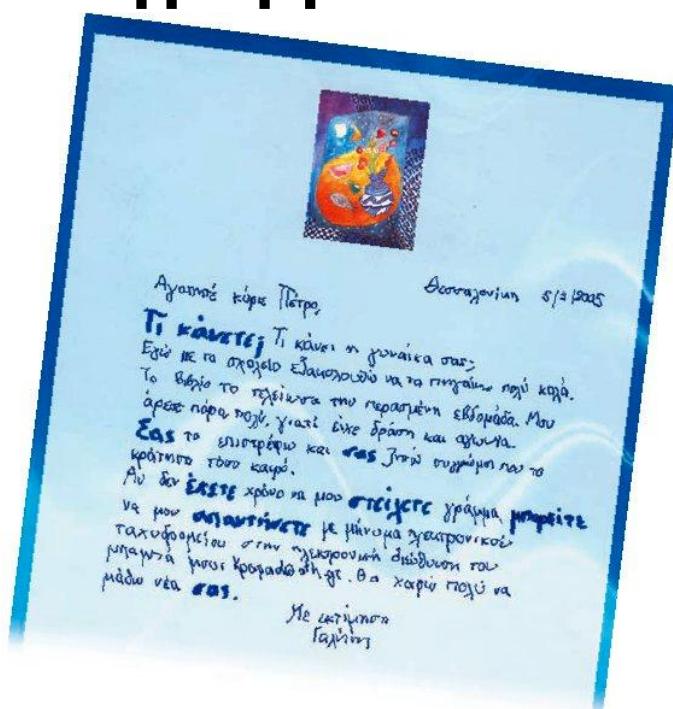 Θεσσαλονίκη 5/2/2005
Αγαπητέ κύριε Πέτρο,
Τι κάνετε; Τι κάνει η γυναίκα σας;
Εγώ με το σχολείο εξακολουθώ να τα πηγαίνω πολύ καλά.
Το βιβλίο το τελείωσα την περασμένη εβδομάδα. Μου
άρεσε πάρα πολύ, γιατί είχε δράση και αγωνία.
Σας το επιστρέφω και σας ζητώ συγγνώμη που το
κράτησα τόσο καιρό.
Αν δεν έχετε χρόνο να μου στείλετε γράμμα μπορείτε
να μου απαντήσετε με μήνυμα ηλεκτρονικού
ταχυδρομείου στην ηλεκτρονική διεύθυνση του
μπαμπά μου: Θα χαρώ πολύ να
μάθω νέα σας.
Με εκτίμηση